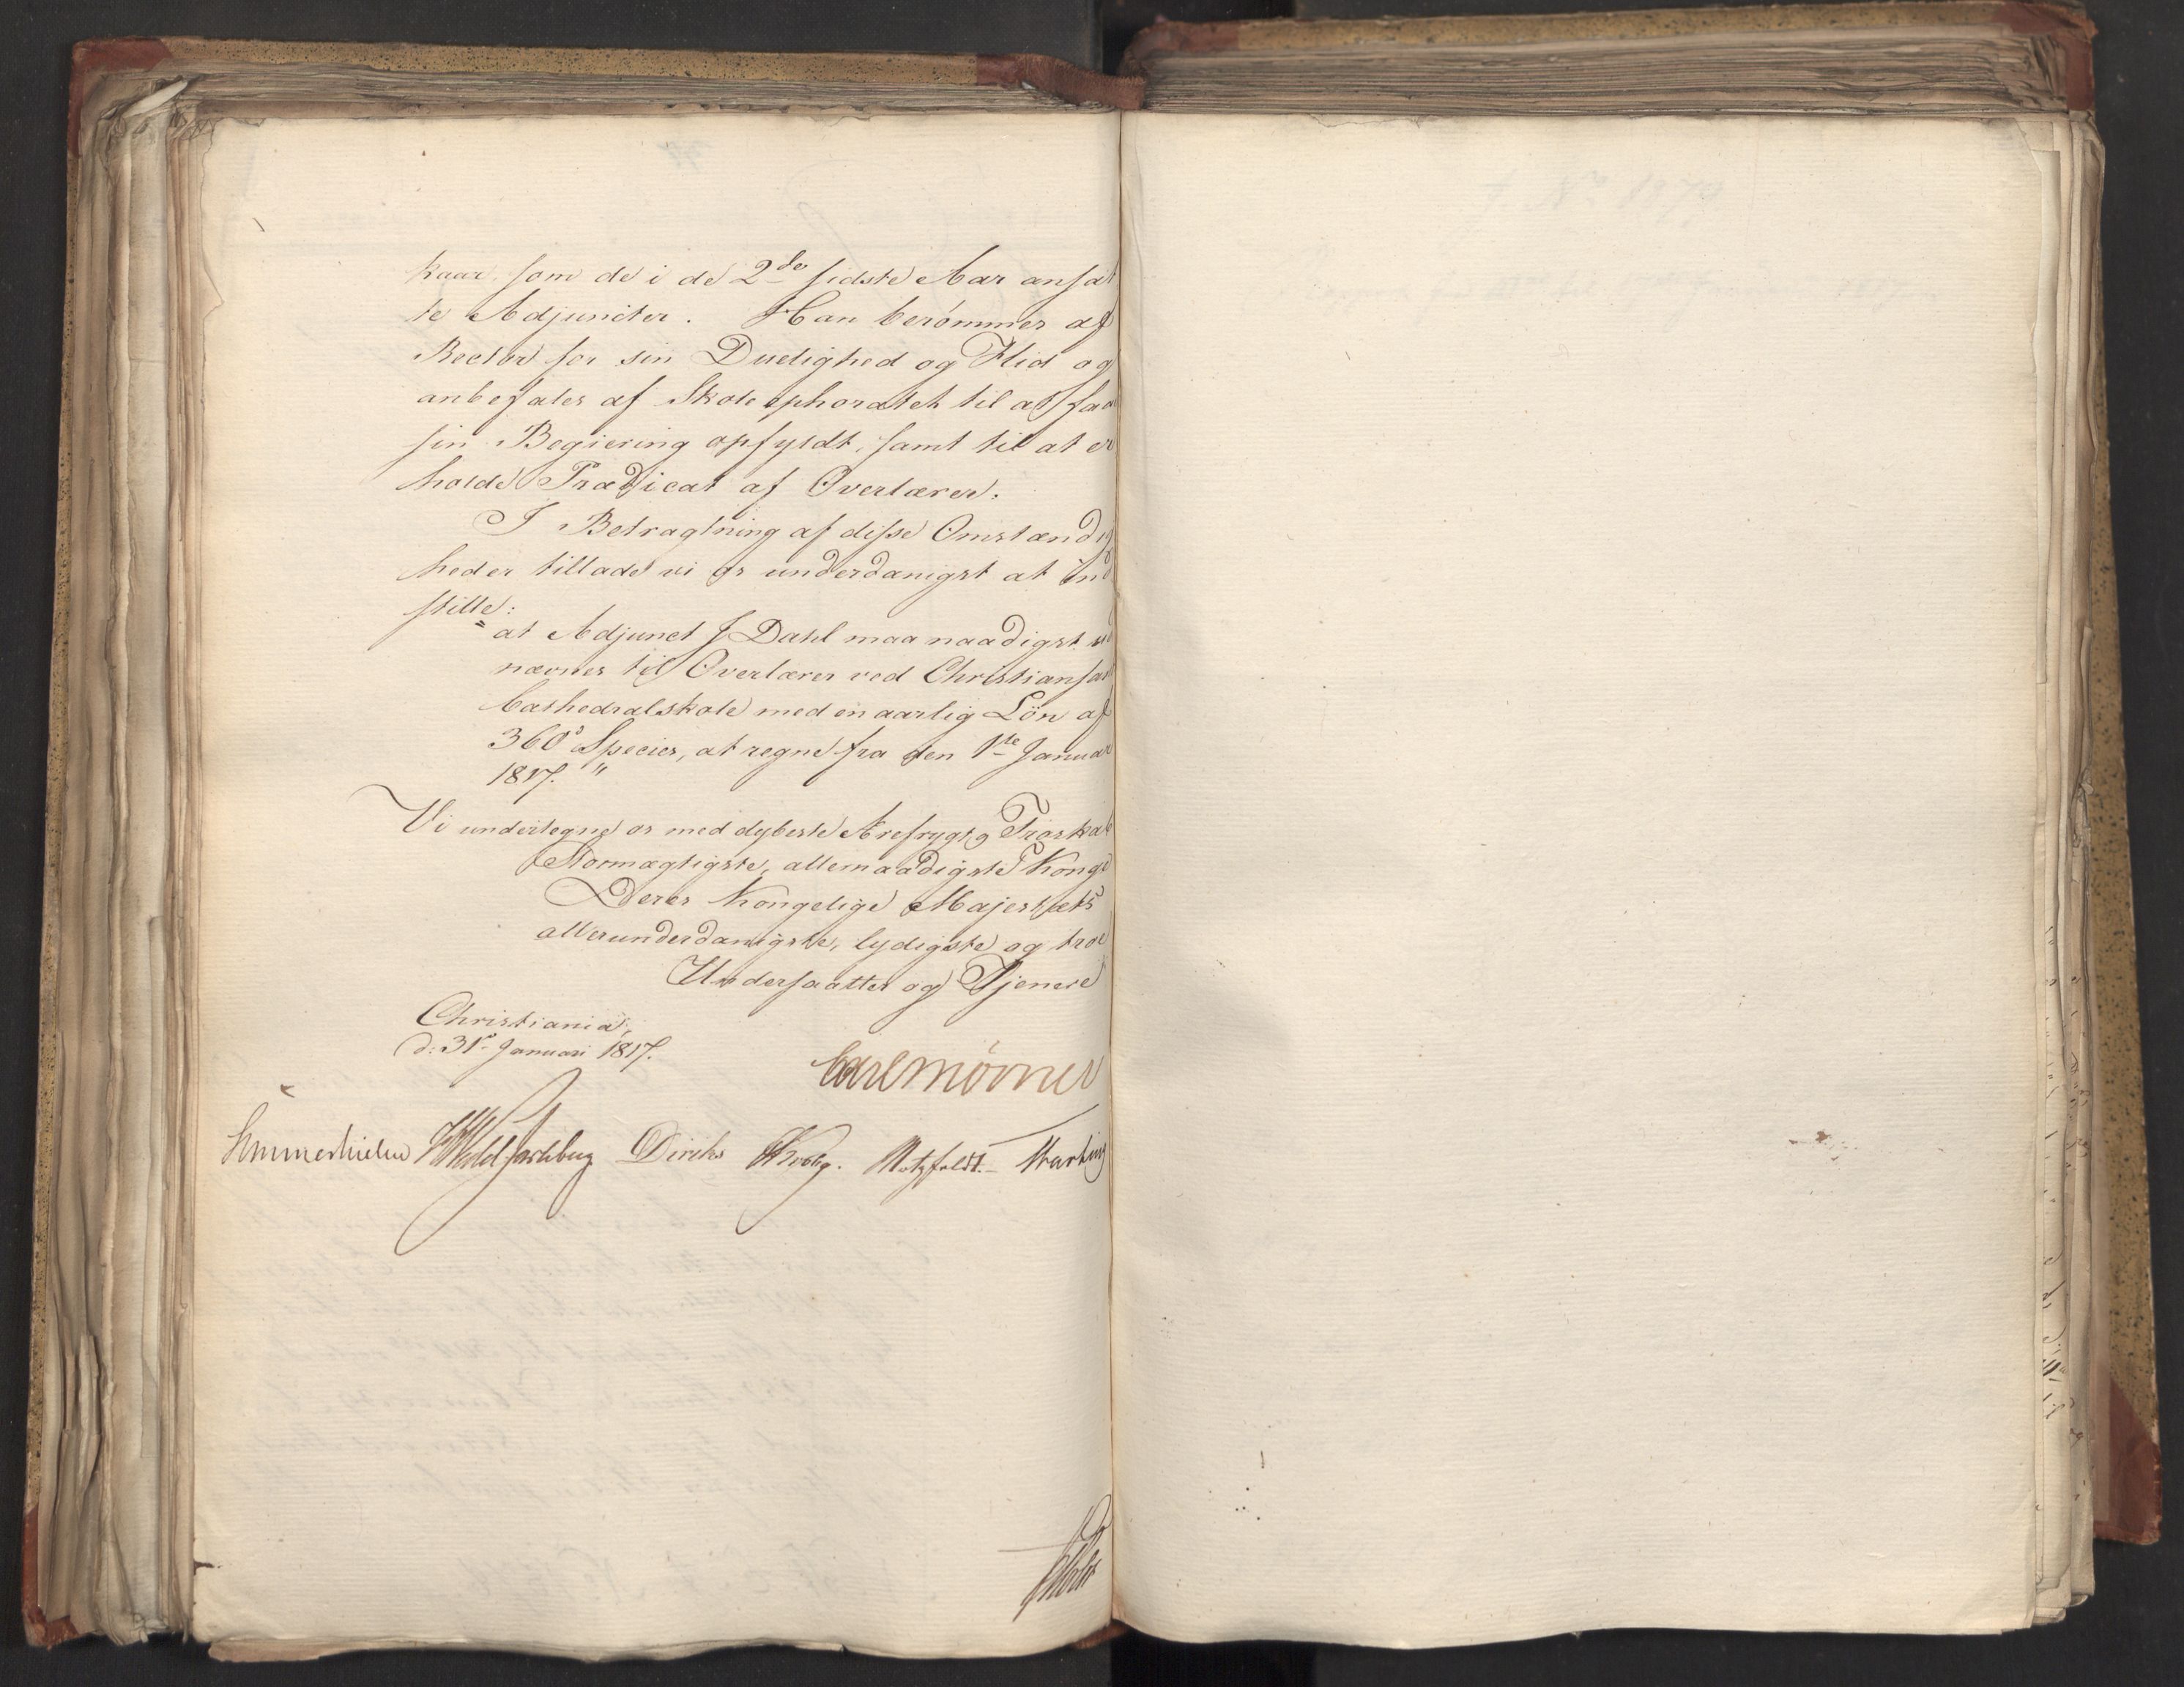 kaar som de i de 2de sidste Aar ansat
te Adjuncter. Han berömmes af
Rector for sin Duelighed og Flid og
anbefales af Skoleephoratet til at faae
sin Begiering opfyldt, samt til at er
holde Prædicat af Overlærer.
I Betragtning af disse Omstændig
heder tillade vi os underdanigst at ind
stille:
at Adjunct J Dahl maa naadigst ud
nævnes til Overlærer ved Christiansand
Cathedralskole med en aarlig Lön af
360 Species, at regne fra den 1ste Januar
1817."
Vi undertegne os med dybeste Ærefrygt og Troskab
Stormægtigste, allernaadigste Konge
Deres Kongelige Majestæts
allerunderdanigste, lydigste og troe
Undersaatter og Tjenere
Christiania,
d: 31 Januari 1817.
Carl Mörner
Sommerhielm Wedel Jarlsberg Diriks Krog. Motzfeldt. Hartwig
Holst